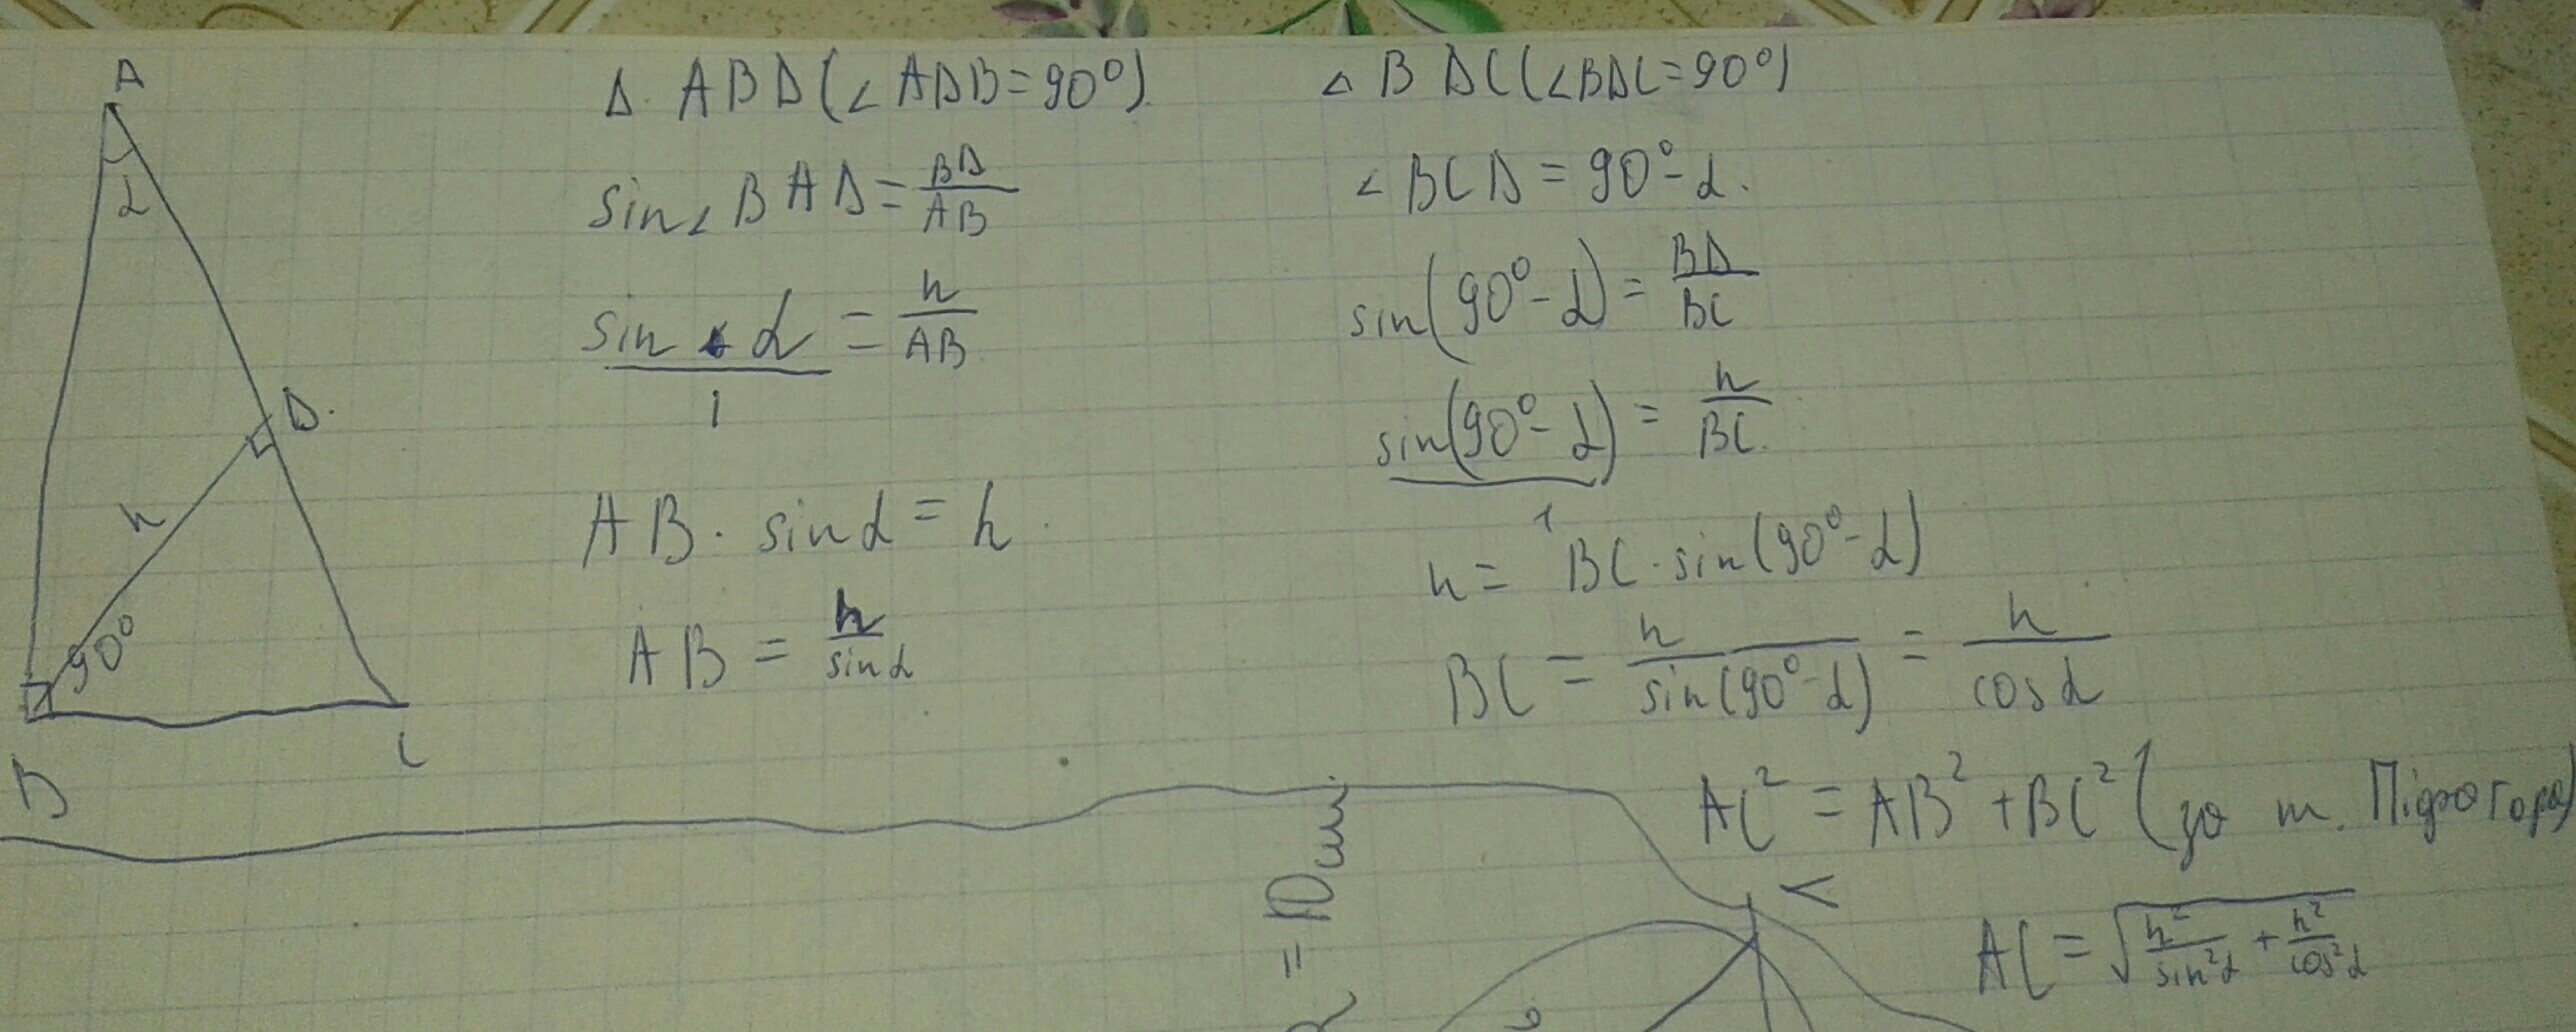 A
α
D.
h
90°
B
C
Δ ABD (∠ADB=90°).
sin∠BAD = BD/AB
sin α / 1 = h/AB
AB · sinα = h.
AB = h/sinα
Δ BDC (∠BDC=90°)
∠BCD = 90°-α.
sin(90°-α) = BD/BC
sin(90°-α) / 1 = h/BC.
h = BC · sin(90°-α)
BC = h/sin(90°-α) = h/cosα
AC² = AB² + BC² (за т. Піфагора)
AC = √(h²/sin²α + h²/cos²α)